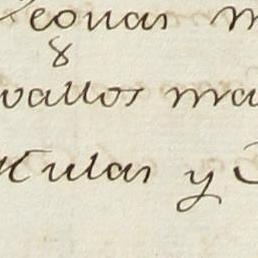 Yeguas m
8
vallos ma
Mulas y